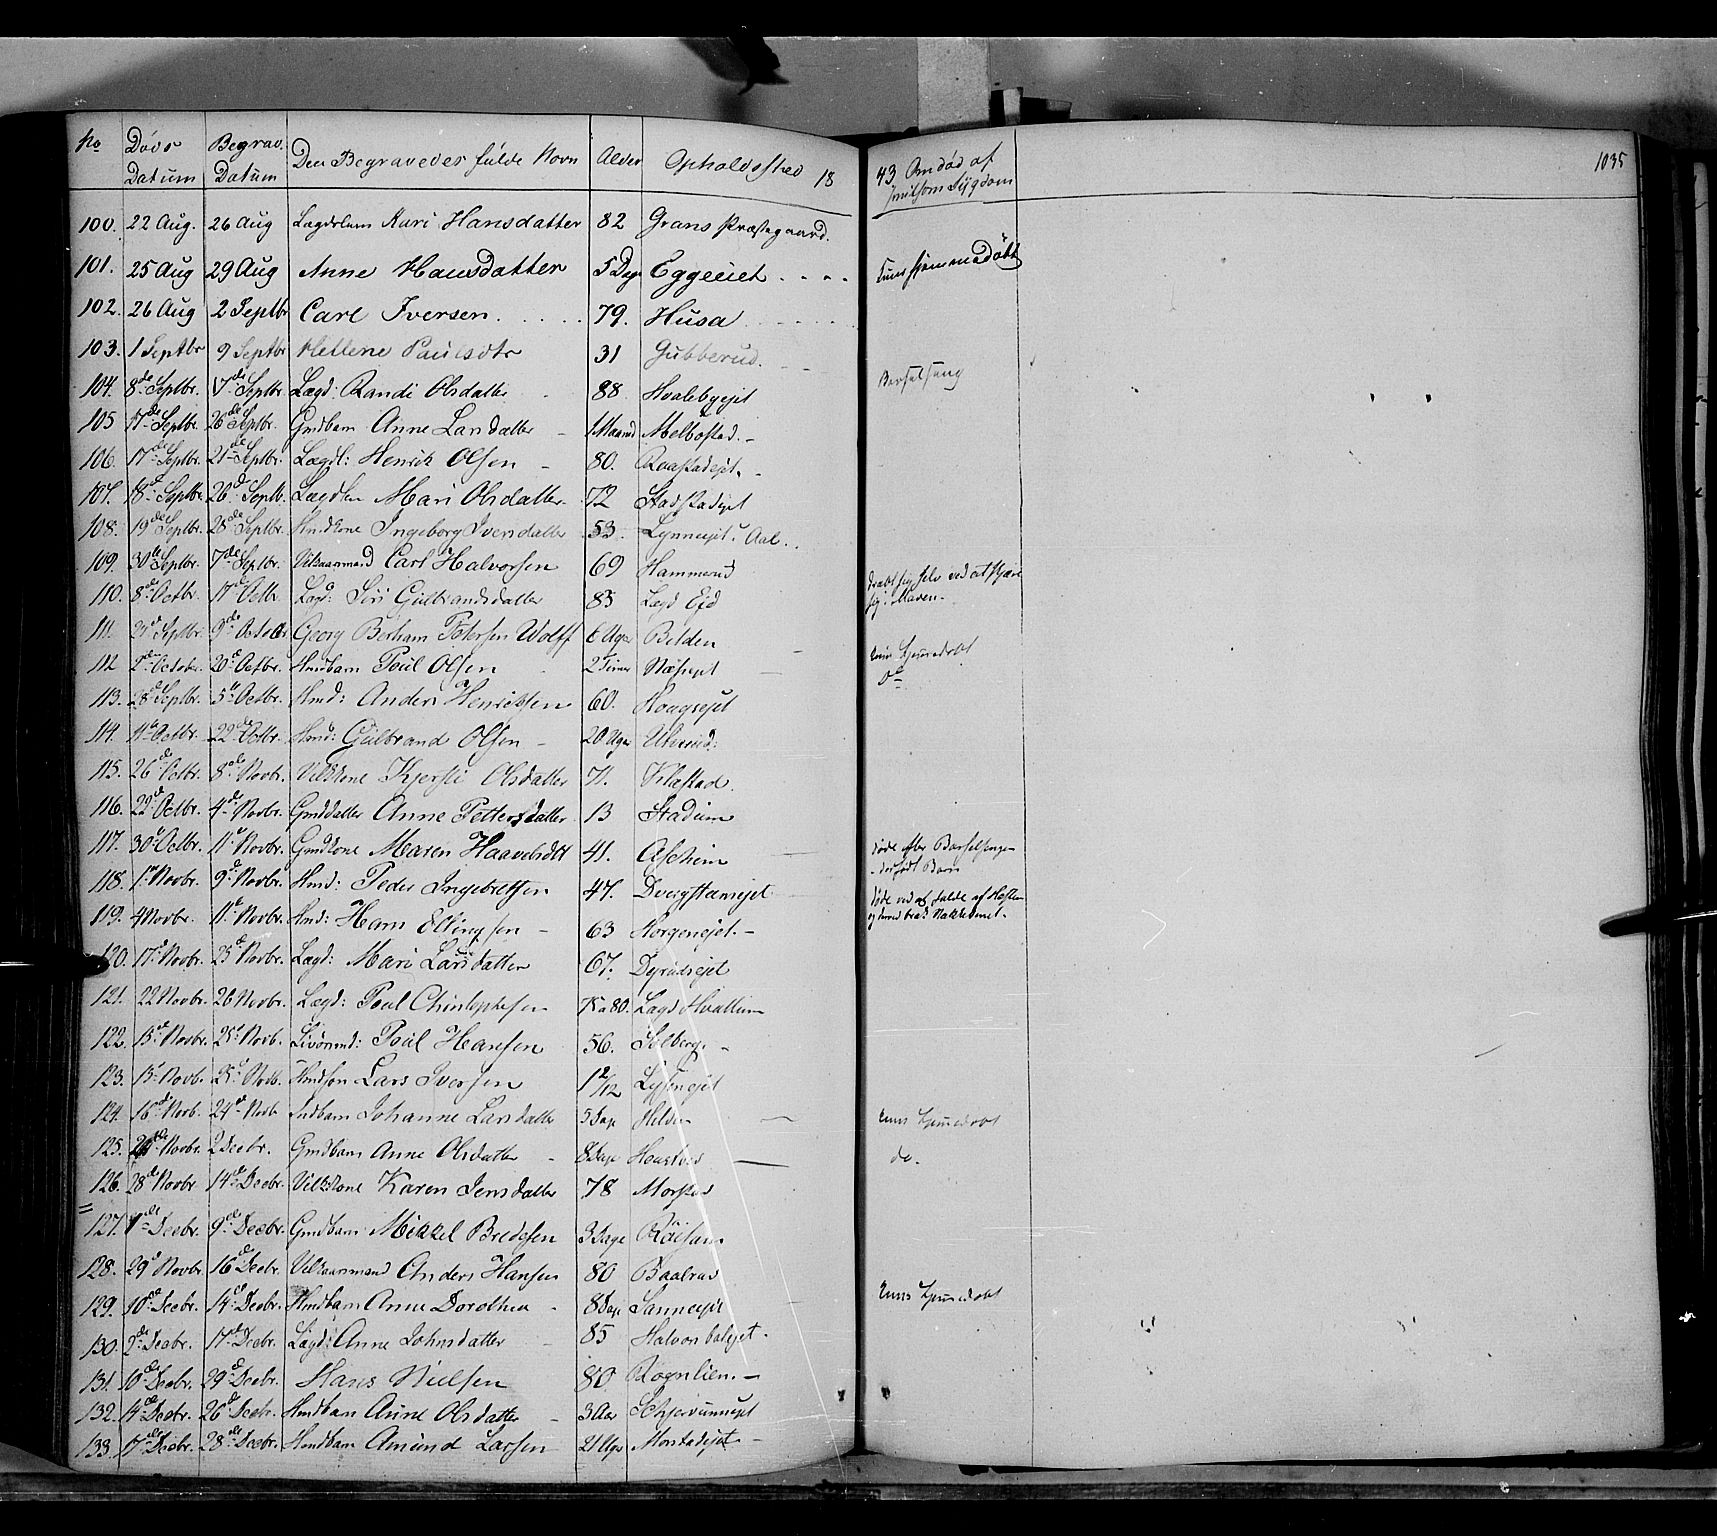 No Døds Datum Begrav. Datum Den Begravedes fulde Navn Alder Opholdssted 18
43 Om død af smitsom Sygdom
1035
100. 22 Aug. 26 Aug Lægdslem Kari Hansdatter 82 Grans Præstegaard.
101. 25 Aug 29 Aug Anne Hansdatter 5 Dage Eggeeiet hjemmedøbt
102. 26 Aug 2 Septbr Carl Iversen 79. Husa
103. 1 Septbr 9 Septbr Hellene Paulsdtr 31 Gubberud. Barselseng
104. 8de Septbr. 17de Septbr. Lægd: Randi Olsdatter 88 Hvalebyejet
105 17de Septbr. 26de Septbr. Gmdbarn Anne Larsdatter 1 Maaned Melbostad.
106. 17de Septbr. 21de Septbr. Lægdl: Henrik Olsen 80. Raastadejet.
107. 18de Septbr. 26d Septb. Lægdlem Mari Olsdatter 72 Stadstadejet
108. 19de Septbr. 28de Septbr. Hmdkone Ingeborg Iversdatter 53. Lynneejet i Aal.
109. 30te Septbr. 7de Septbr. Vilkaarmand Carl Halvorsen 69 Hammerud dræbt sig selv ved at skjære
sig i Maven.
110. 8de Octbr. 17d Octb. Lægd: Siri Gulbrandsdatter 85 Lægd
111. 27d Septbr. 9de October Georg Berham Petersen Wolff 6 Uger Bilden hjemmedøbt
112 Octobr. 20d Octbr. Hmdbarn Poul Olsen 2 Timer Næsejet do
113. 28d Septbr. 5te Octbr. Hmd: Anders Henriksen 60. Haagsejet
114. 11te Octbr. 22de Octbr. Hmd: Gulbrand Olsen 20 Uger
115. 26de Octbr. 8de Novbr. Vilkkone Kjersti Olsdatter 71. Klæstad.
116. 22d Octbr. 4de Novbr. Gmddatter Anne Pettersdatter 13 Stadum
117. 30te Octbr. 11te Novbr. Gmdkone Maren Haavelsdtt 41. Ascheim døde efter Barselseng
dødfødt Barn
118. 1ste Novbr. 9de Novbr. Hmd: Peder Ingebretsen 47. Dvergstenejet døde ved at falde af Hesten
og derved brak Nakkebenet.
119. 4 Novbr. 11te Novbr. Hmd: Hans Ellingsen 63 Horgenejet.
120. 17de Novbr. 25de Novbr. Lægd: Mari Larsdatter 67. Dyrudsejet
121. 22 Novbr. 26 Novbr. Lægd: Poul Christophersen 75 a 80. Lægd Hvattum
122. 15de Novbr. 25d Novb. Livørmd: Poul Hansen 56. Solberg.
123. 15d Novb. 25d Novb. Hmdsøn Lars Iversen 1 2/12 Lysenejet
124. 16d Novb. 24de Novb. Indbarn Johanne Larsdatter 5 Dage Helden hjemmedøbt
125. Novbr. 2 Decbr. Gmdbarn Anne Olsdatter 8 Dage do.
126. 28de Novbr 14de Decbr. Vilkkone Karen Jensdatter 78 Morstad
127. 1ste Decbr. 9de Decbr. Gmdbarn Mikkel Bredesen 3 Dage Røisum
128. 29d Novbr. 16de Decbr. Vilkaarmand Anders Hansen 80 Baalrud
129. 10de Decbr. 14de Decbr. Hmdbarn Anne Dorothea 8 Dage Sanneejet hjemmedøbt
130. 2de Decbr. 17de Decbr. Lægd: Anne Johnsdatter 85 Halvorsbølejet.
131. 10de Decbr. 29d Decbr. Hans Nielsen 80. Rognlien.
132. 14d Decbr. 26d Decbr. Hmdbarn Anne Olsdatter 3 Aar Schjervumejet
133. 17de Decbr. 28de Decbr. Hmdbarn Amund Larsen 21 Uger Morstadejet